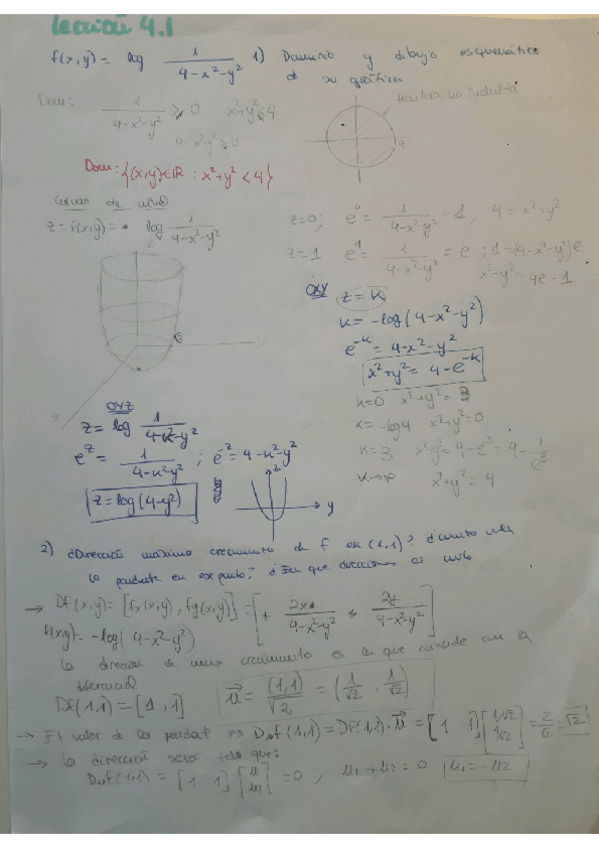 Lección 4.1
f(x,y) = log 1/(4-x²-y²) 1) Dominio y dibujo esquemático
d su gráfica
Dom: 1/(4-x²-y²) > 0 x²+y² < 4
frontera no incluida
4-x²-y² > 0
4
Dom: {(x,y)∈ℝ : x²+y² < 4}
Curvas de nivel
z = f(x,y) = log 1/(4-x²-y²)
z=0; e⁰ = 1/(4-x²-y²) = 1; 4 = x²+y²
z=1 e¹ = 1/(4-x²-y²) = e; 1=(4-x²-y²)e
x²+y² = 4e-1
OXY z = K
K = -log(4-x²-y²)
e^-K = 4-x²-y²
x²+y² = 4-e^-K
K=0 x²+y² = 3
K=-log4 x²+y²=0
K=3 x²+y²=4-e^-3 = 4-1/e³
K→∞ x²+y² = 4
OYZ
z = log 1/(4-x²-y²)
e^z = 1/(4-x²-y²); e^-z = 4-x²-y²
z = log(4-y²)
z
y
2) ¿Dirección máximo crecimiento de f en (1,1)? ¿Cuánto vale
la pendiente en ese punto? ¿En que direcciones es nula
→ Df(x,y) = [fx(x,y), fy(x,y)] = [+ 2x/(4-x²-y²) 2y/(4-x²-y²)]
f(x,y) = -log(4-x²-y²)
la dirección de max crecimiento es la que coincide con la
diferencial
Df(1,1) = [1, 1] u⃗ = (1,1)/√2 = (1/√2, 1/√2)
→ El valor de la pendiente es Duf(1,1) = Df(1,1)·u⃗ = [1 1][1/√2 1/√2] = 2/√2 = √2
→ la dirección será tal que:
Duf(1,1) = [1 1][u₁ u₂] = 0, u₁+u₂ = 0 u₁ = -u₂